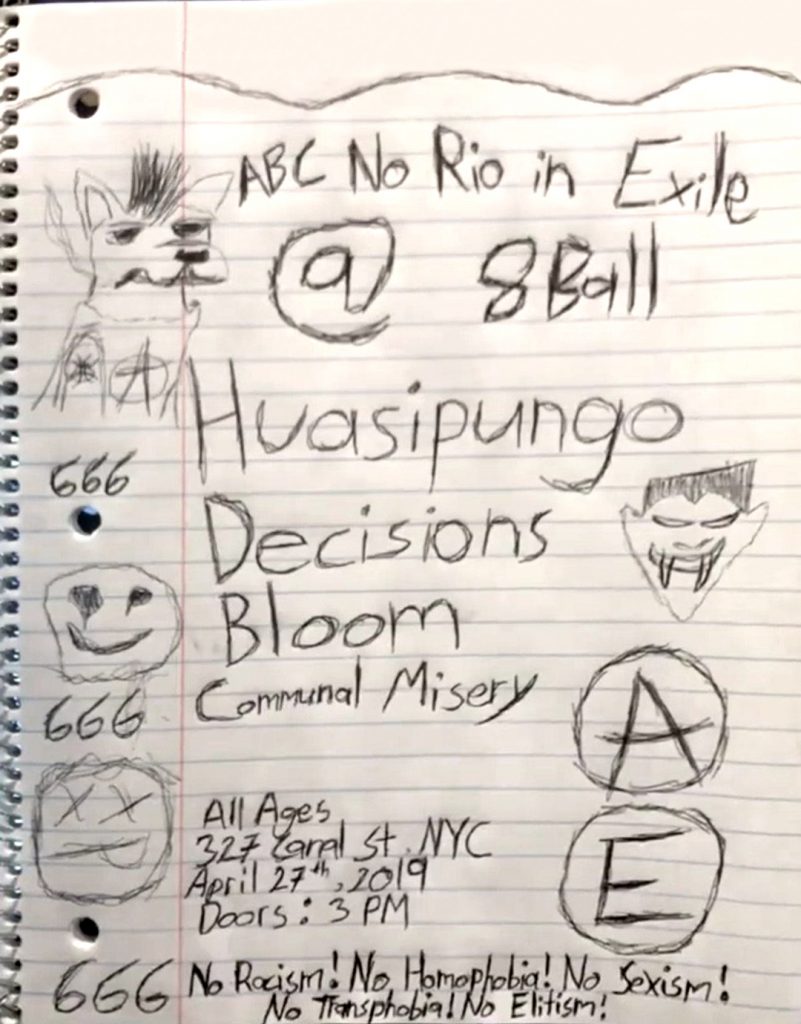 ABC No Rio in Exile
@ 8Ball
A
Huasipungo
666
Decisions
Bloom
Communal Misery
666
A
All Ages
327 Canal St. NYC
April 27th, 2019
Doors: 3 PM
E
666
No Racism! No Homophobia! No Sexism!
No Transphobia! No Elitism!